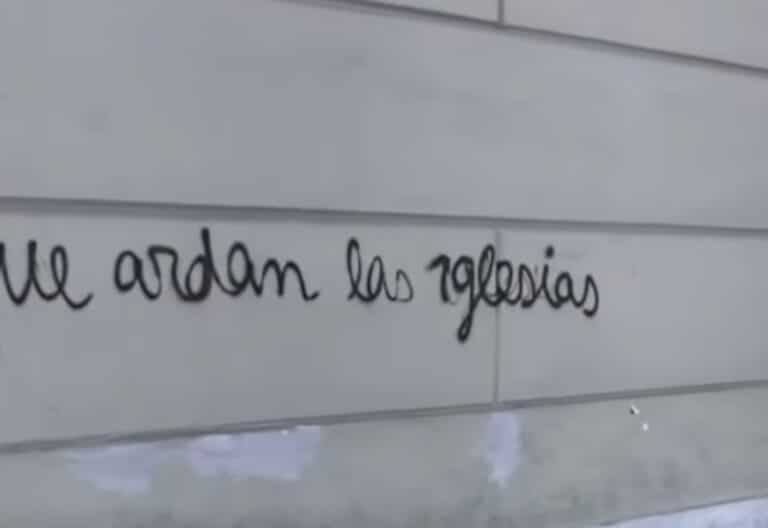 ue ardan las iglesias